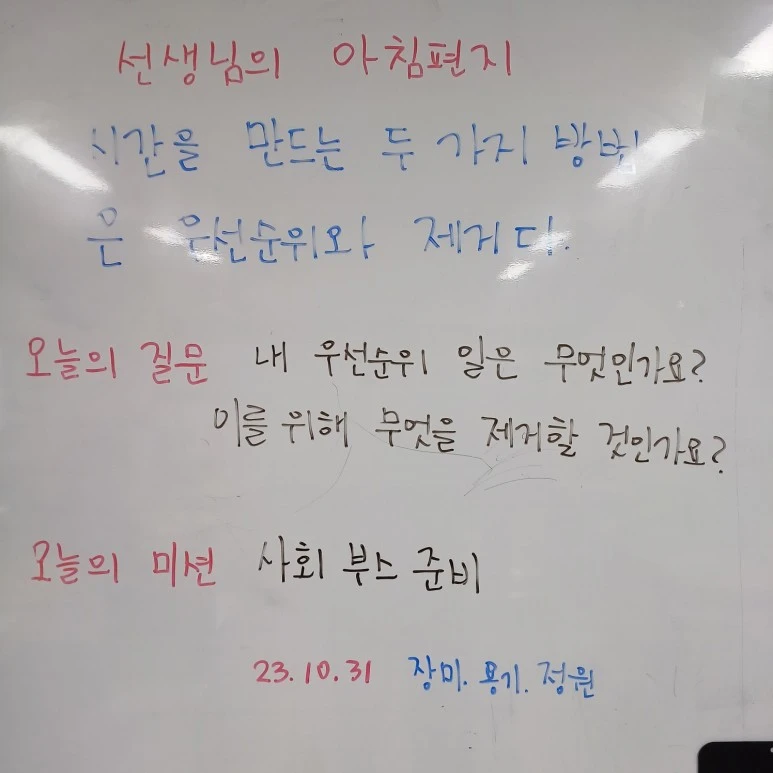 선생님의 아침편지
시간을 만드는 두 가지 방법
은 우선순위와 제거다.
오늘의 질문 내 우선순위 일은 무엇인가요?
이를 위해 무엇을 제거할 것인가요?
오늘의 미션 사회 부스 준비
23.10.31 장미. 용기. 정원